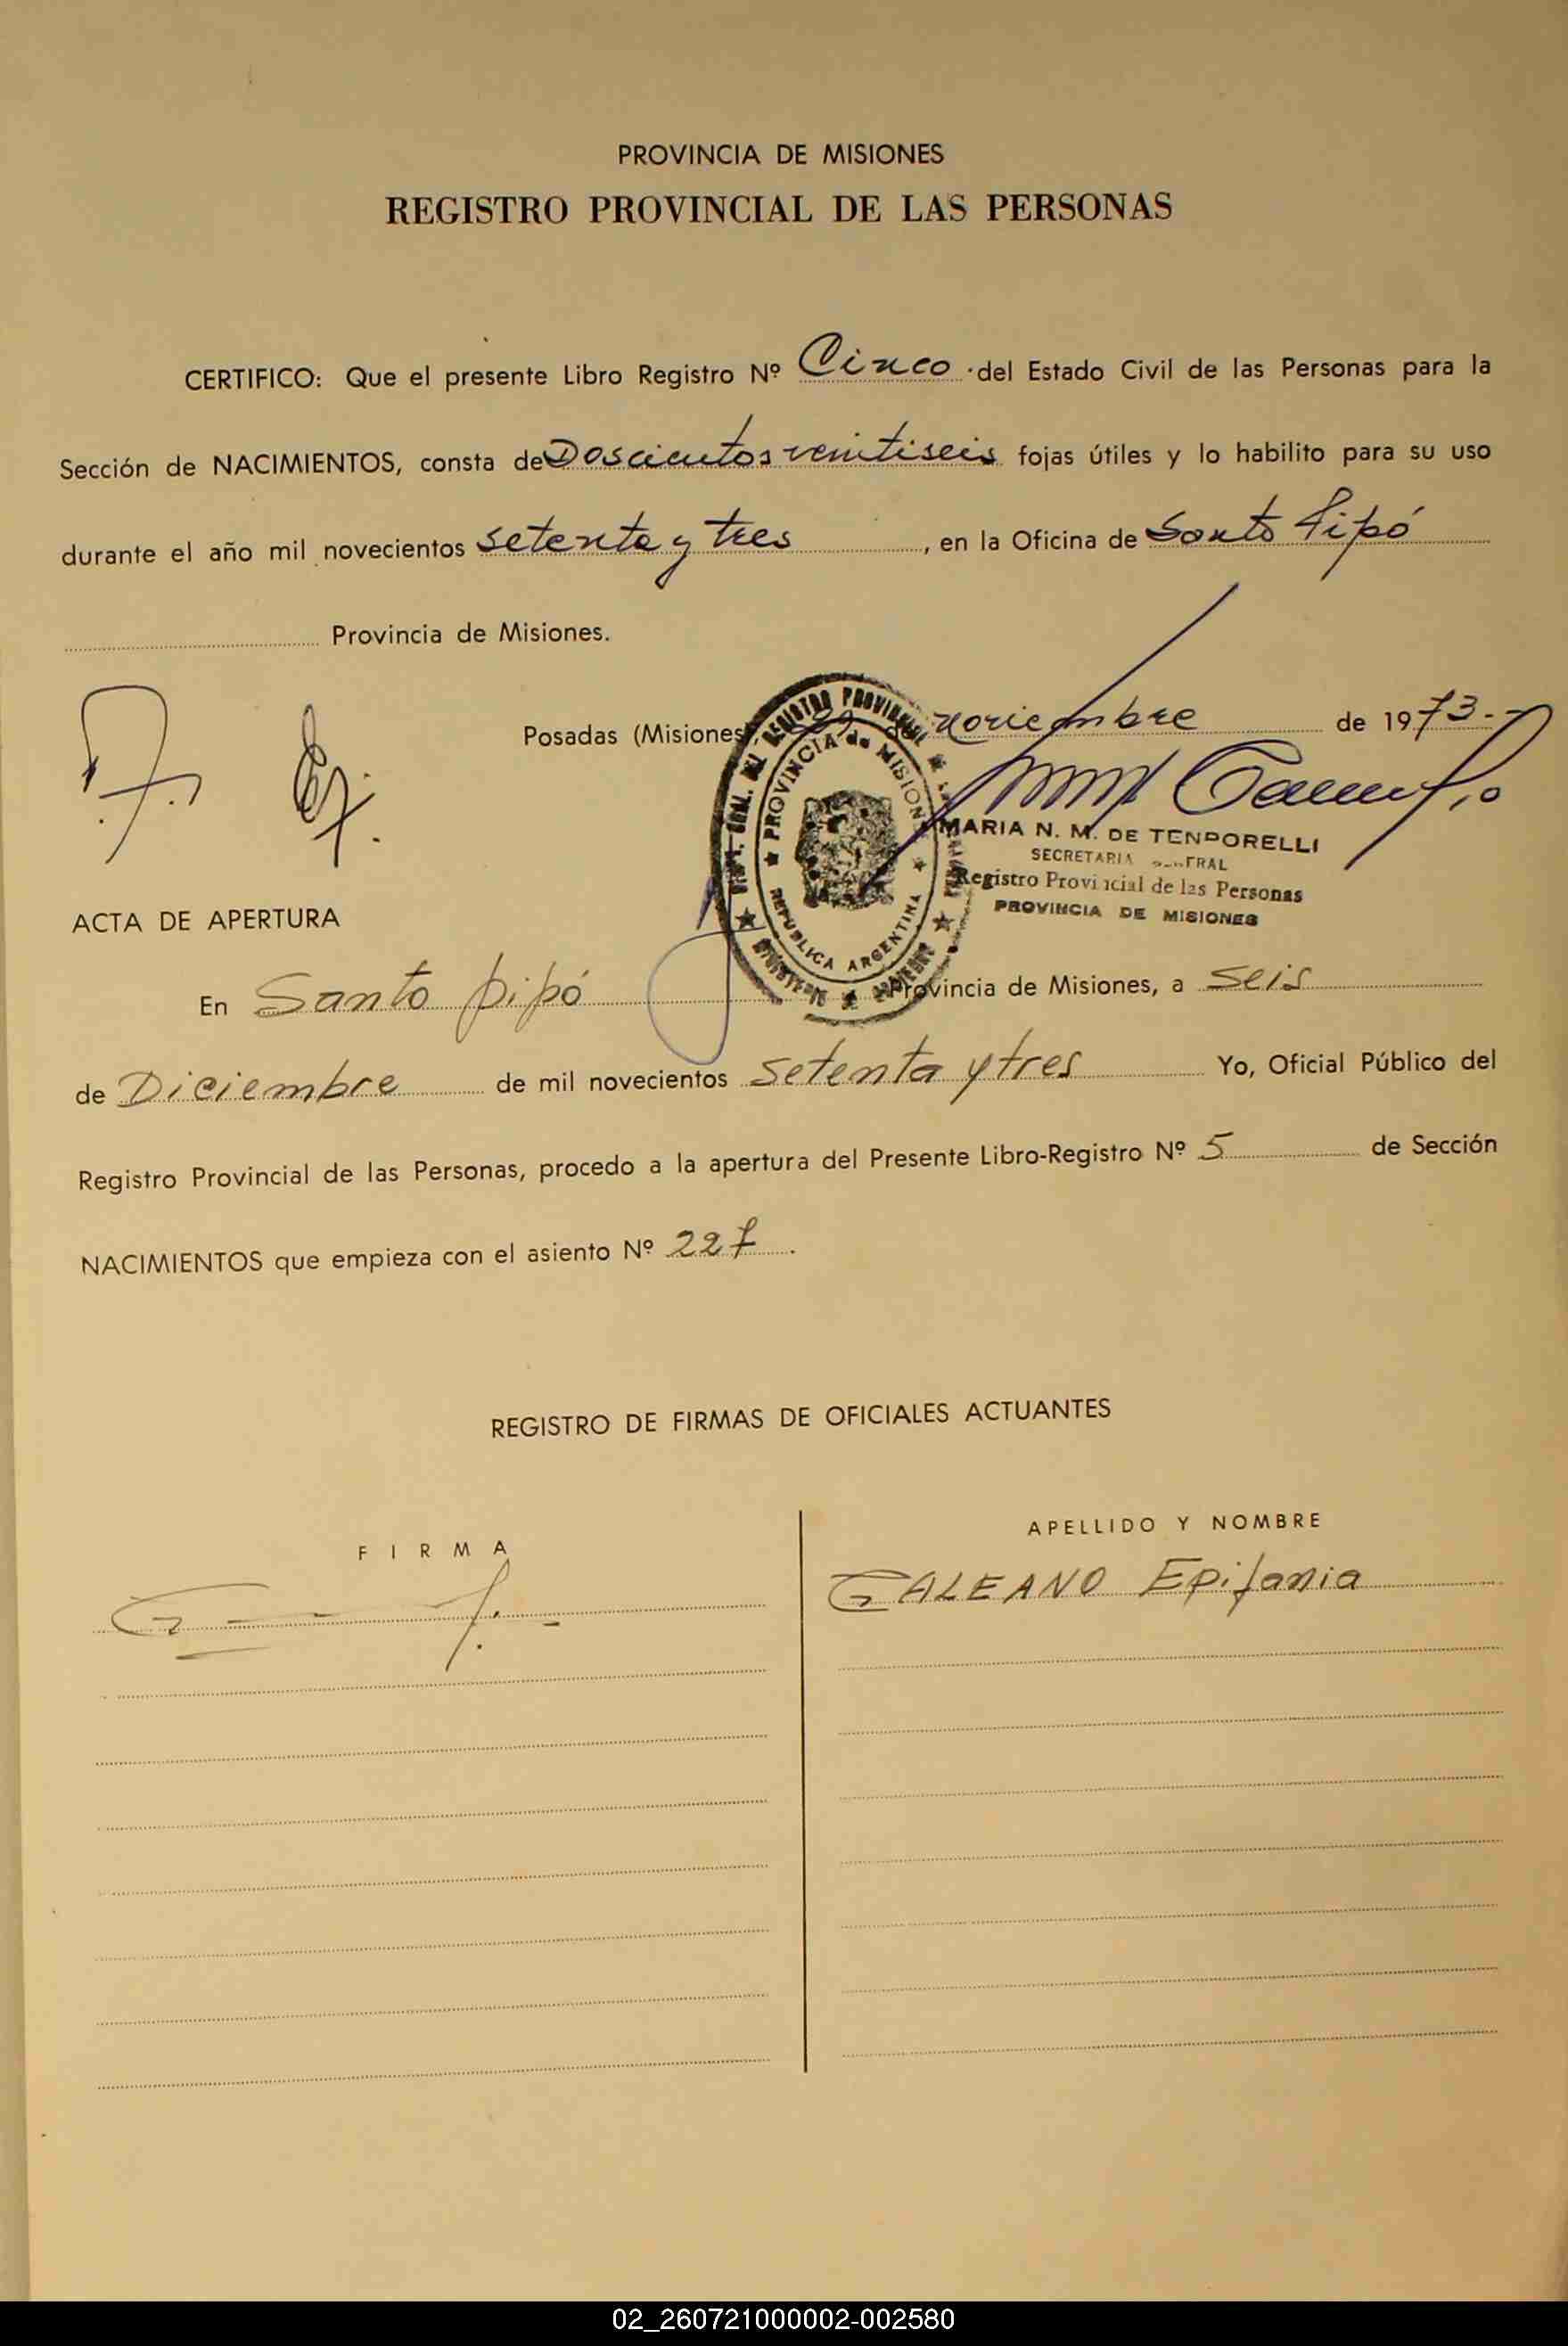 PROVINCIA DE MISIONES
REGISTRO PROVINCIAL DE LAS PERSONAS
CERTIFICO: Que el presente Libro Registro Nº Cinco del Estado Civil de las Personas para la
Sección de NACIMIENTOS, consta de Doscientos veintiseis fojas útiles y lo habilito para su uso
durante el año mil novecientos setenta y tres, en la Oficina de Santo Pipó
Provincia de Misiones.
Posadas (Misiones) de noviembre de 1973.-
MARIA N. M. DE TENPORELLI
SECRETARIA GENTRAL
Registro Provincial de las Personas
PROVINCIA DE MISIONES
PROVINCIA de MISIONES
REPUBLICA ARGENTINA
ACTA DE APERTURA
En Santo pipó Provincia de Misiones, a seis
de Diciembre de mil novecientos setenta y tres Yo, Oficial Público del
Registro Provincial de las Personas, procedo a la apertura del Presente Libro-Registro Nº 5 de Sección
NACIMIENTOS que empieza con el asiento Nº 227.
REGISTRO DE FIRMAS DE OFICIALES ACTUANTES
FIRMA
APELLIDO Y NOMBRE
GALEANO Epifania
02_260721000002-002580